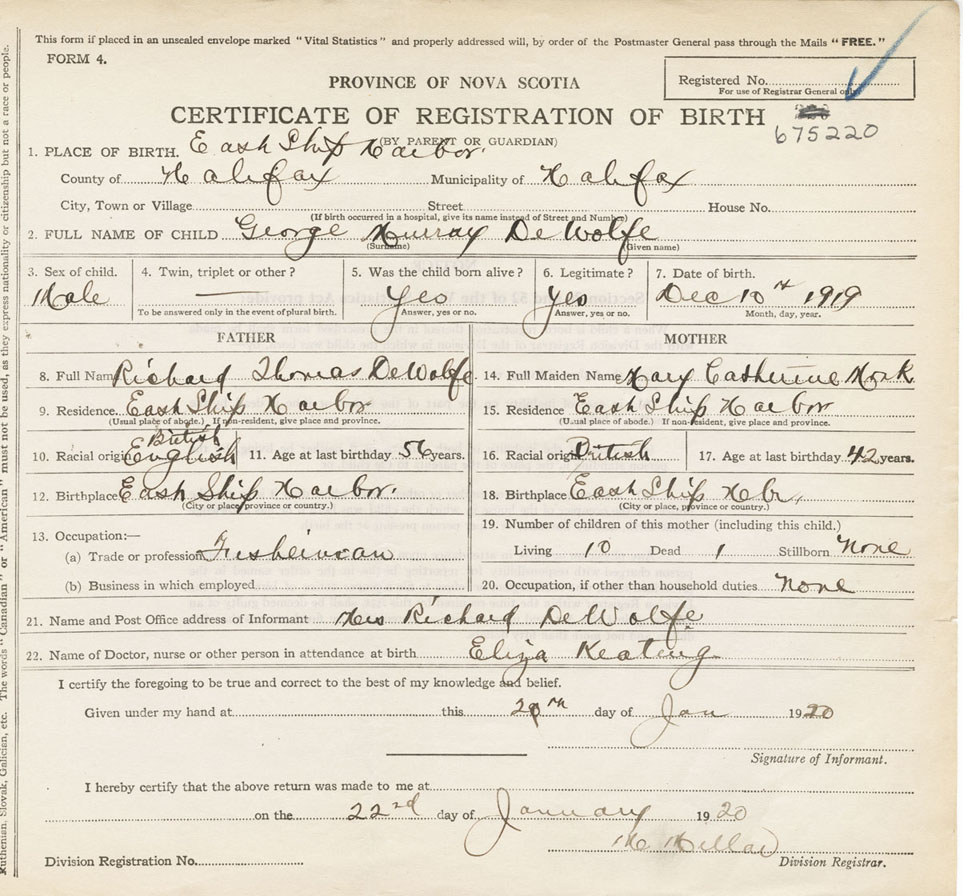 This form if placed in an unsealed envelope marked "Vital Statistics" and properly addressed will, by order of the Postmaster General pass through the Mails "FREE."
FORM 4.
PROVINCE OF NOVA SCOTIA
Registered No.
For use of Registrar General only
CERTIFICATE OF REGISTRATION OF BIRTH
675220
(BY PARENT OR GUARDIAN)
1. PLACE OF BIRTH. East Ship Harbor.
County of Halifax Municipality of Halifax
City, Town or Village Street House No.
(If birth occurred in a hospital, give its name instead of Street and Number)
2. FULL NAME OF CHILD George Murray DeWolfe
(Surname) (Given name)
3. Sex of child. 4. Twin, triplet or other? 5. Was the child born alive? 6. Legitimate? 7. Date of birth.
Male — Yes Yes Dec 10th 1919
To be answered only in the event of plural birth. Answer, yes or no. Answer, yes or no. Month, day, year.
FATHER MOTHER
8. Full Name Richard Thomas DeWolfe 14. Full Maiden Name Mary Catherine
9. Residence East Ship Harbor 15. Residence East Ship Harbor
(Usual place of abode.) If non-resident, give place and province. (Usual place of abode.) If non-resident, give place and province.
British
10. Racial origin English 11. Age at last birthday 56 years. 16. Racial origin British 17. Age at last birthday 42 years.
12. Birthplace East Ship Harbor. 18. Birthplace East Ship Hbr.
(City or place, province or country.) (City or place, province or country.)
13. Occupation:— 19. Number of children of this mother (including this child.)
(a) Trade or profession Fisherman Living 10 Dead 1 Stillborn None
(b) Business in which employed 20. Occupation, if other than household duties None
21. Name and Post Office address of Informant Mrs Richard DeWolfe
22. Name of Doctor, nurse or other person in attendance at birth Eliza Keating
I certify the foregoing to be true and correct to the best of my knowledge and belief.
Given under my hand at this 20th day of Jan 1920
Signature of Informant.
I hereby certify that the above return was made to me at
on the 22nd day of January 1920
Division Registration No. Division Registrar.
Ruthenian, Slovak, Galician, etc. The words "Canadian" or "American" must not be used, as they express nationality or citizenship but not a race or people.